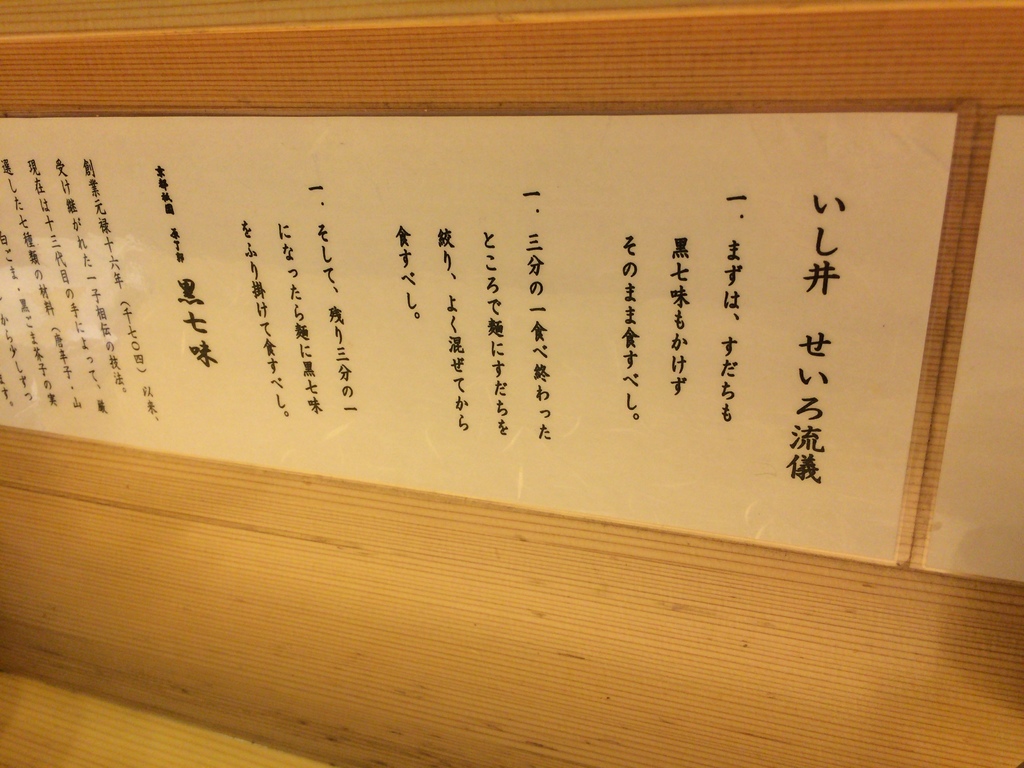 いし井 せいろ流儀
一．まずは、すだちも
黒七味もかけず
そのまま食すべし。
一．三分の一食べ終わった
ところで麺にすだちを
絞り、よく混ぜてから
食すべし。
一．そして、残り三分の一
になったら麺に黒七味
をふり掛けて食すべし。
京都祇園 原了郭 黒七味
創業元禄十六年（千七〇四）以来、
受け継がれた一子相伝の技法。
現在は十三代目の手によって、厳
選した七種類の材料（唐辛子・山
白ごま・黒ごま・茶子の実
から少しずつ
ます。